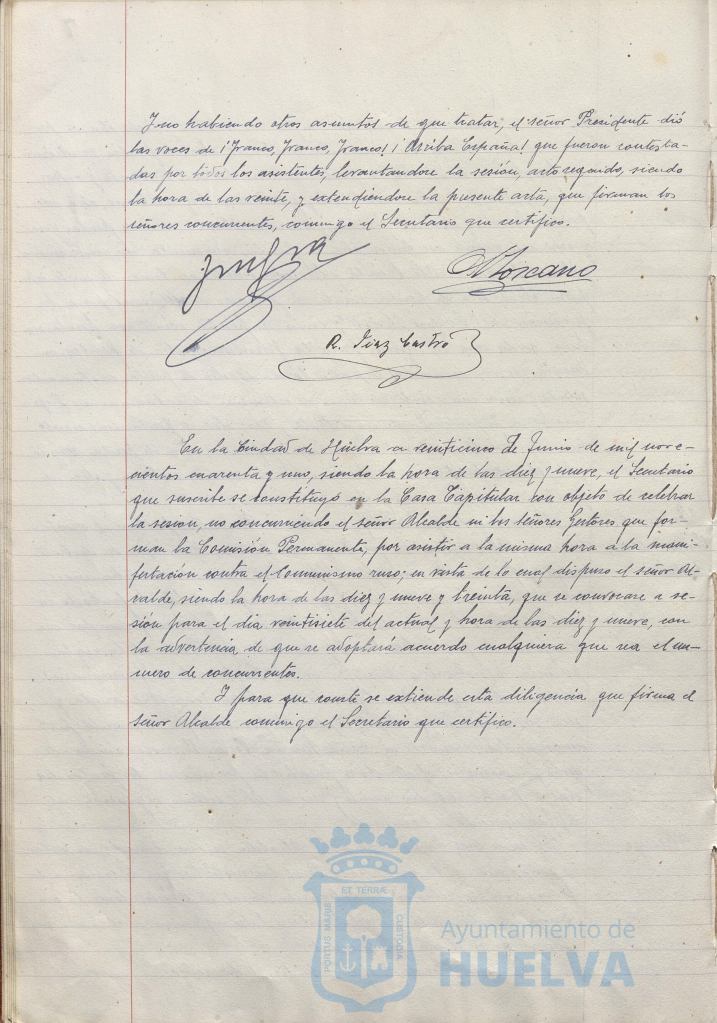 Y no habiendo otros asuntos de que tratar, el señor Presidente dió
las voces de ¡Franco, Franco, Franco! ¡Arriba España! que fueron contesta-
das por todos los asistentes, levantandose la sesión, acto seguido, siendo
la hora de las veinte, y extendiendose la presente acta, que firman los
señores concurrentes, conmigo el Secretario que certifico.
Moscano
R. Diaz Castro
En la Ciudad de Huelva a veinticinco de Junio de mil nove-
cientos cuarenta y uno, siendo la hora de las diez y nueve, el Secretario
que suscribe se constituyó en la Casa Capitular con objeto de celebrar
la sesion, no concurriendo el señor Alcalde ni los señores Gestores que for-
man la Comisión Permanente, por asistir a la misma hora a la mani-
festación contra el Comunismo ruso; en vista de lo cual dispuso el señor Al-
calde, siendo la hora de las diez y nueve y treinta, que se convocase a se-
sión para el dia veintisiete del actual y hora de las diez y nueve, con
la advertencia de que se adoptará acuerdo cualquiera que sea el nu-
mero de concurrentes.
Y para que conste se extiende esta diligencia que firma el
señor Alcalde conmigo el Secretario que certifico.
ET TERRÆ
PORTUS MARIS
CUSTODIA
Ayuntamiento de
HUELVA